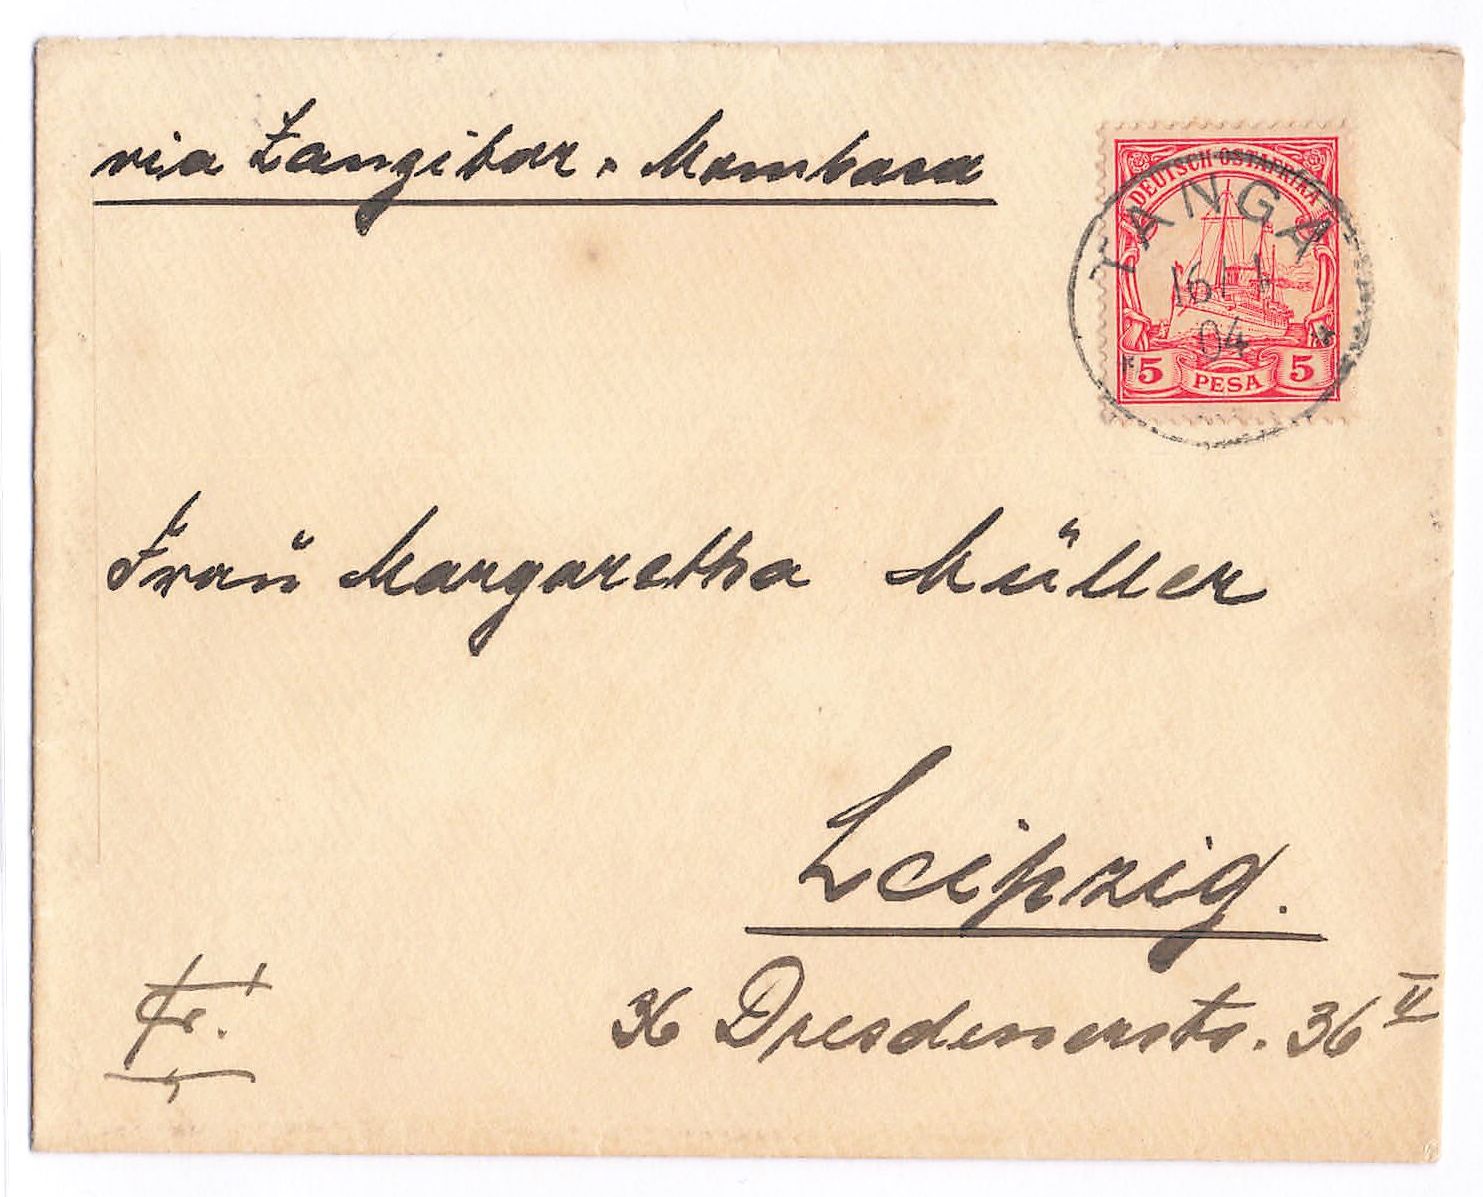 via Zanzibar. Mombasa
DEUTSCH-OSTAFRIKA
TANGA
16/1
04
* *
5 PESA 5
Frau Margaretha Müller
Leipzig.
36 Dresdenerstr. 36 II
fr.